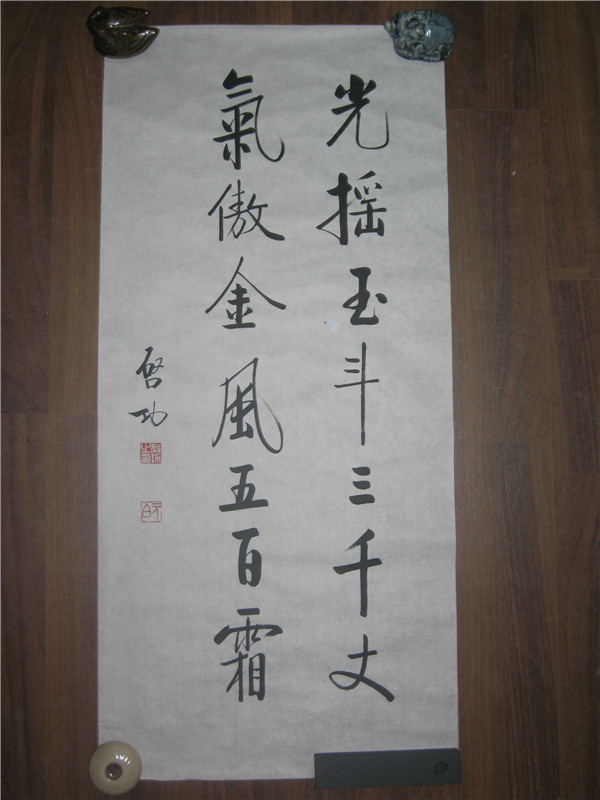 光摇玉斗三千丈
氣傲金風五百霜
啓功